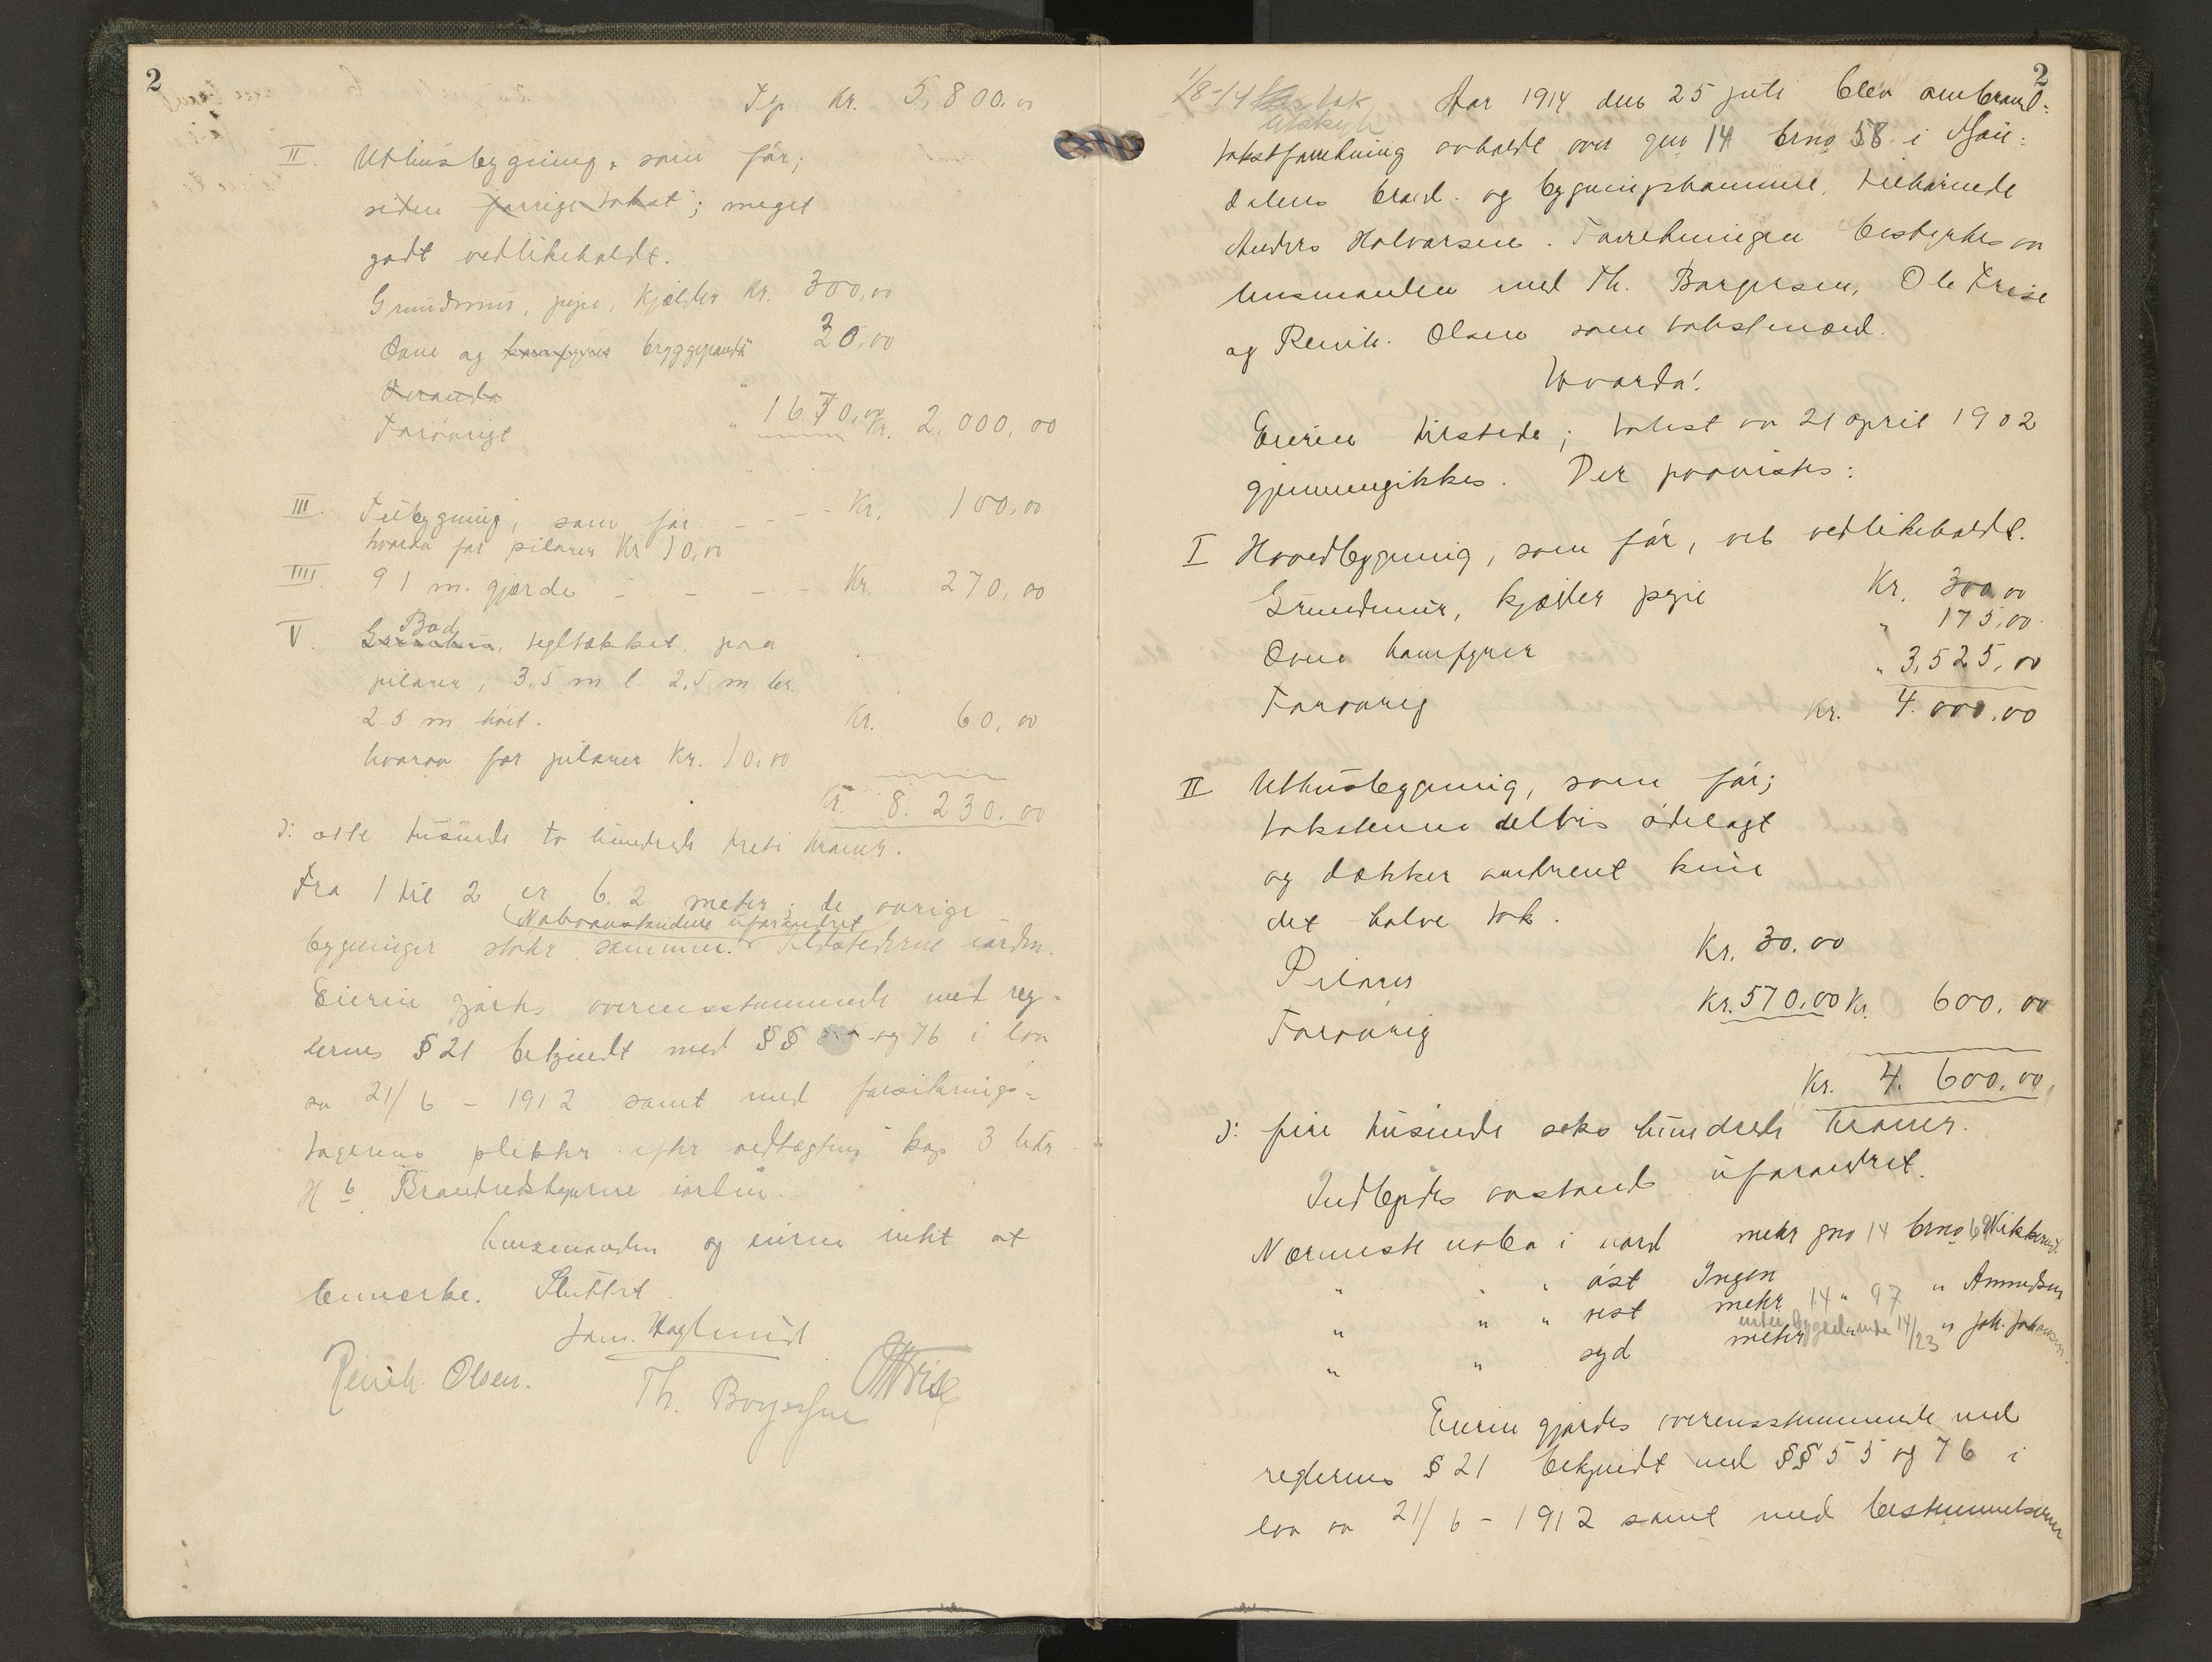 2
Tp. Kr. 5,800.00
II. Uthusbygning, som før;
siden forrige takst; meget
godt vedlikeholdt.
Grundmur, pipe, kjælder Kr. 300,00
Ovne og komfyrer bryggepande " 30,00
Veranda "
Forøvrigt " 1670,00 Kr. 2.000,00
III. Tilbygning, som før - - - Kr. 100,00
hvorav for pilarer Kr 10,00
IIII. 91 m. gjærde - - - - Kr. 270,00
Bod
V. tegltækket, paa
pilarer, 3.5 m l. 2,5 m br.
2.5 m høit. Kr. 60,00
hvorav for pilarer Kr. 10,00
Kr. 8.230.00
ɔ: otte tusinde to hundrede treti kroner.
Fra 1 til 2 er 6.2 meter; de øvrige
(Naboavstandene uforandret
bygninger støter sammen. Ildstederne iorden.
Eieren gjørtes overensstemmende med reg-
lernes § 21 bekjendt med §§ og 76 i lov
av 21/6 - 1912 samt med forsikrings-
tagerens plikter efter vedtægtens kap 3 litr
H 6. Brandredskaperne iorden.
Lensmanden og eieren intet at
bemerke. Sluttet.
Jam. Haglund
Reinh. Olsen. Th. Borgersen OTFrise
2
1/8-14 tak
utskrift
Aar 1914 den 25 juli blev ombrand-
takstforretning avholdt over gno 14 brno 58 i Mjøn-
dalens brand- og bygningskommune, tilhørende
Anders Halvorsen. Forretningen bestyrtes av
lensmanden med Th. Borgersen, Ole Frise
og Reinh. Olsen som takstmænd.
Hvorda!
Eieren tilstede; takst av 21 april 1902
gjennemgikkes. Der paavistes:
I Hovedbygning, som før, vel vedlikeholdt.
Grundmur, kjælder pipe Kr. 300,00
Ovne komfyrer " 175,00
Forøvrig " 3,525,00
Kr. 4.000,00
II Uthusbygning, som før;
takstenene delvis ødelagt
og dækker omtrent kun
det halve tak.
Pilarer Kr. 30.00
Forøvrig Kr. 570,00 Kr. 600,00
Kr. 4.600,00,
ɔ: fire tusinde seks hundrede kroner.
Indbyrdes avstand uforandret.
Nærmeste nabo i nord meter gno 14 brno 69
" " " øst Ingen
" " " vest meter 14 " 97 " Amundsen
under bygselnde 14/23 " Joh. Johansen.
" " syd meter
Eieren gjørtes overensstemmende med
reglernes § 21 bekjendt med §§ 55 og 76 i
lov av 21/6 - 1912 samt med bestemmelserne